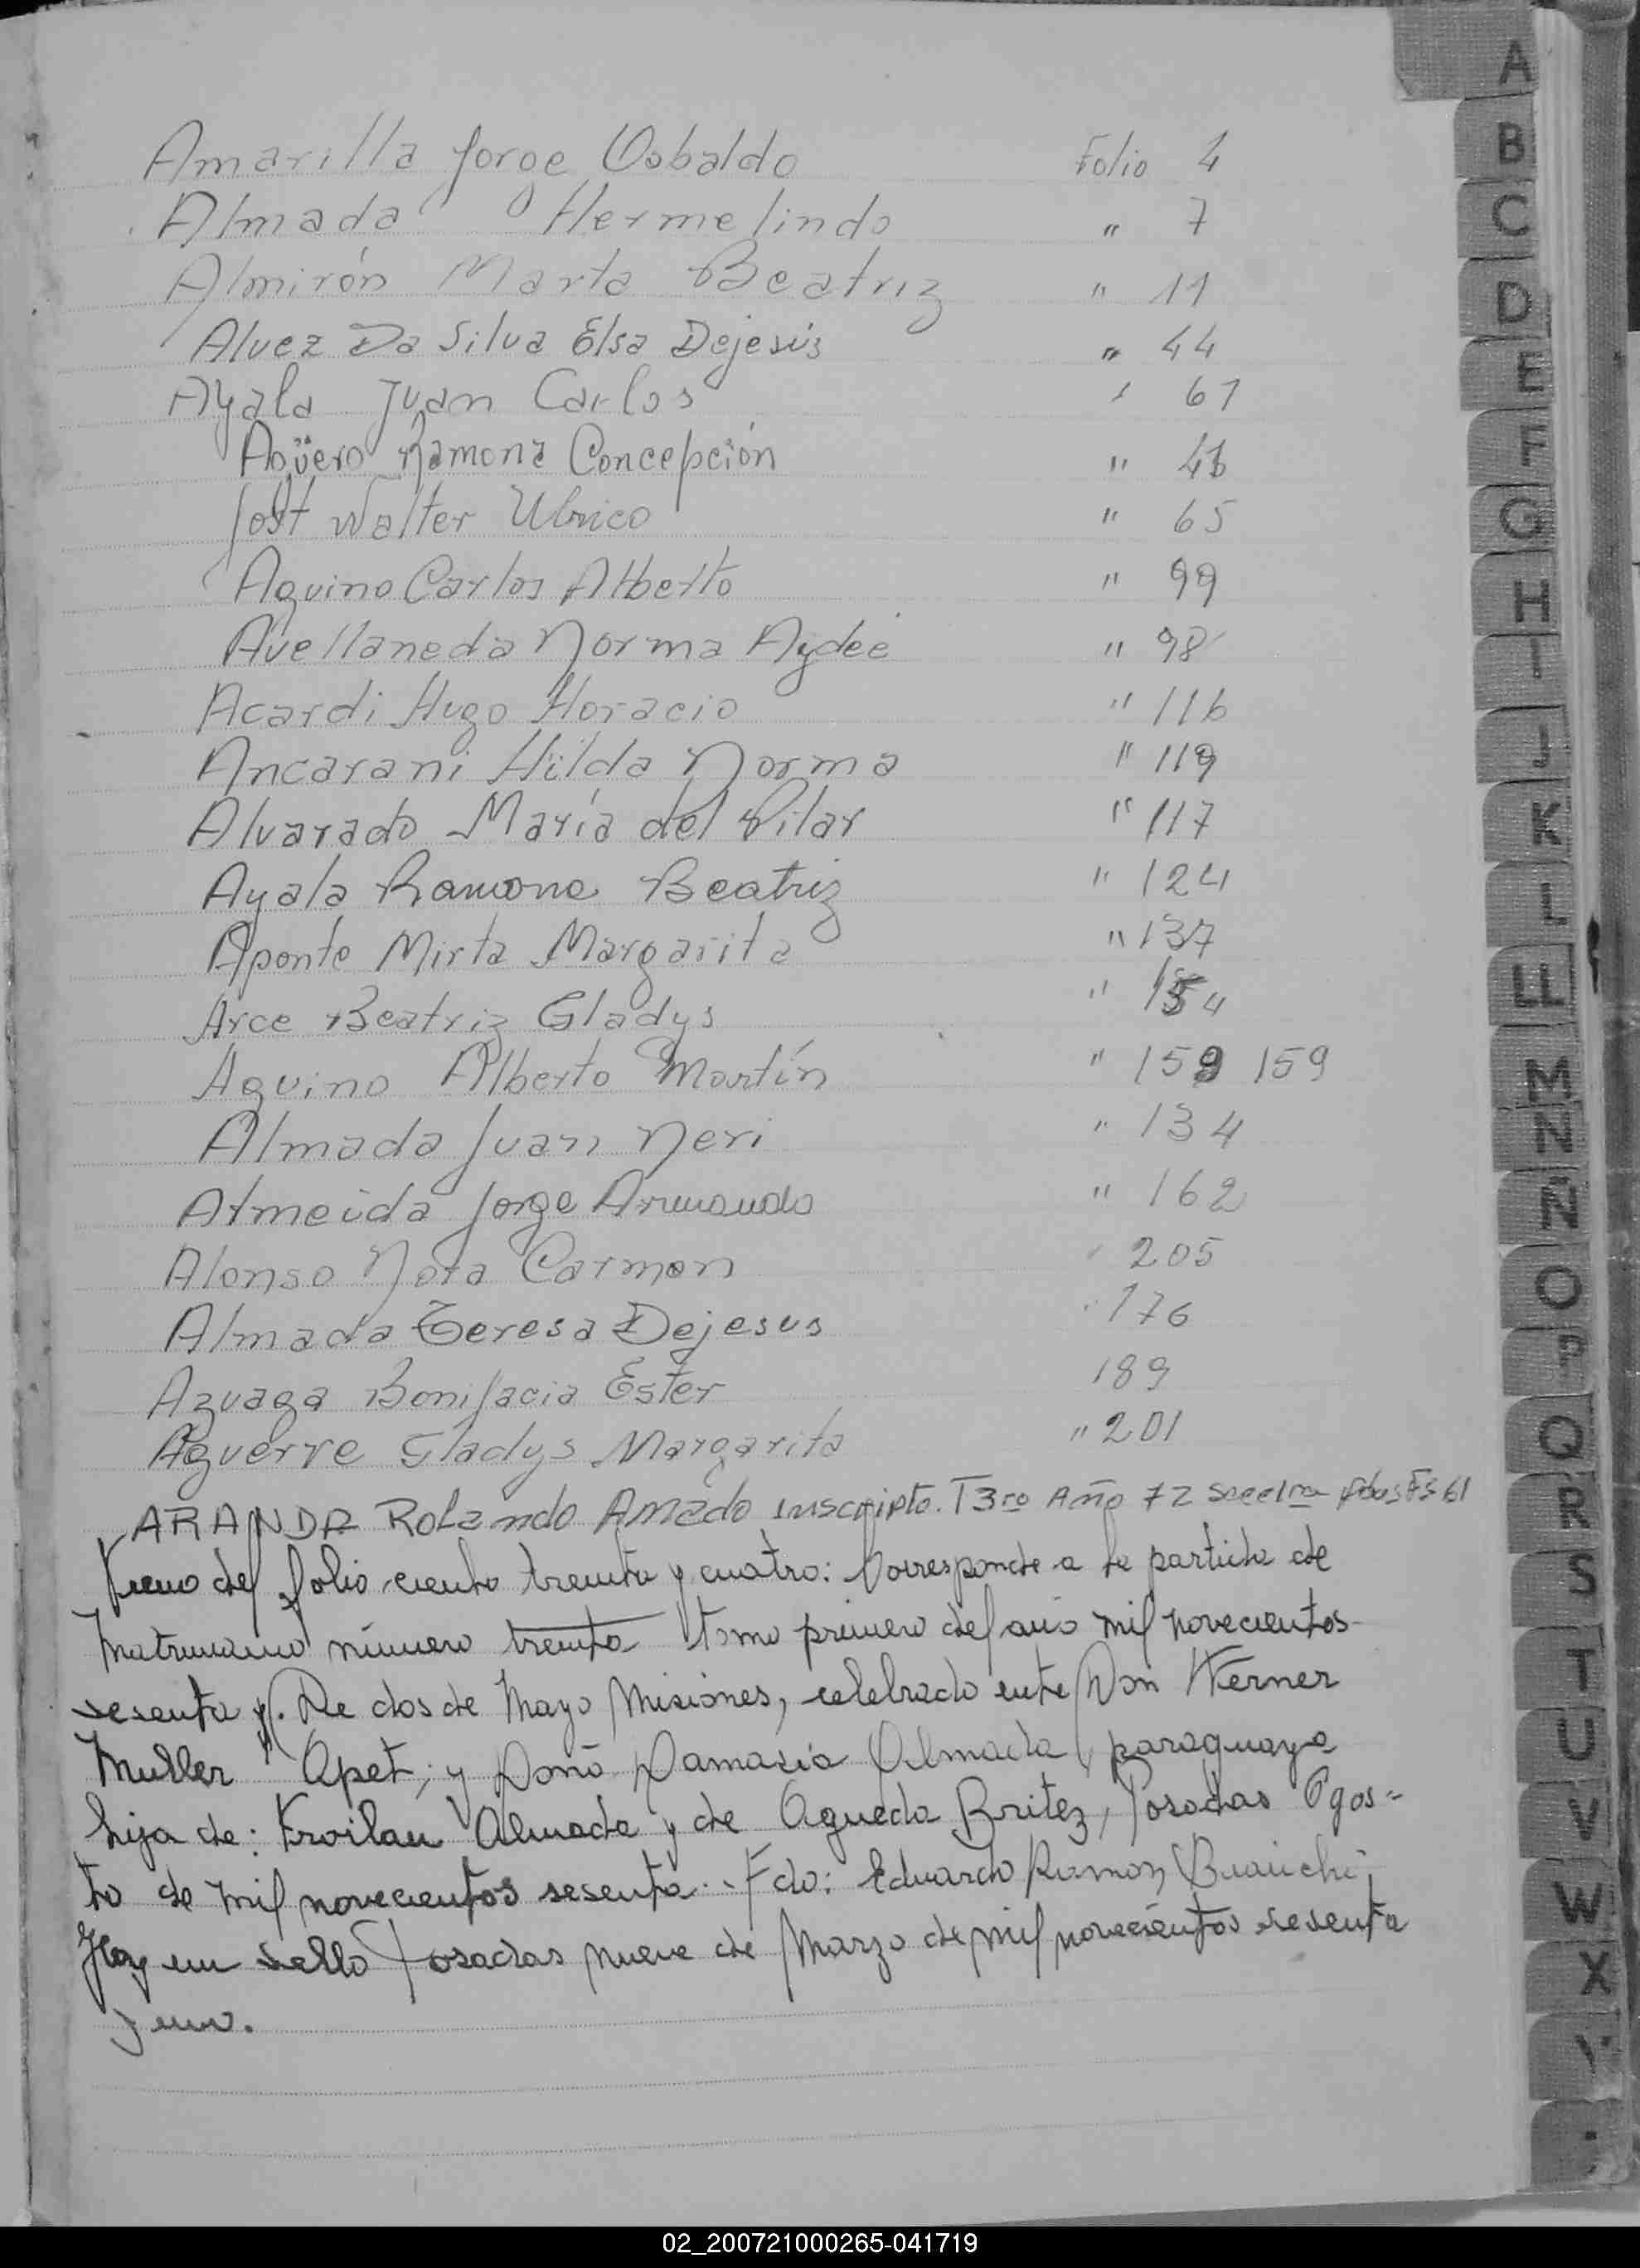 Amarilla Jorge Osbaldo Folio 4
Almada Hermelindo " 7
Almirón Marta Beatriz " 11
Alvez Da Silva Elsa Dejesús " 44
Ayala Juan Carlos " 61
Agüero Ramona Concepción "
Jost Walter Ulrico " 65
Aquino Carlos Alberto " 99
Avellaneda Norma Aydeé " 98
Acardi Hugo Horacio " 116
Ancarani Hilda Norma " 119
Alvarado María del Pilar " 117
Ayala Ramona Beatriz " 124
Aponte Mirta Margarita " 137
Arce Beatriz Gladys " 154
Aquino Alberto Martín " 159 159
Almada Juan Neri " 134
Almeida Jorge Armando " 162
Alonso Nora Carmen " 205
Almada Teresa Dejesus " 176
Azuaga Bonifacia Ester 189
Aguerre Gladys Margarita " 201
ARANDA Rolando Amado inscripto. T3ro Año 72 61
del folio ciento treinta y cuatro: Corresponde a la partida de
Matrimonio número treinta tomo primero del año mil novecientos
sesenta y. De dos de Mayo Misiones, celebrado entre Don Werner
Muller Apet; y Doña Damasia Almada, paraguaya
hija de: Froilan Almada y de Agueda Britez, Posadas Agos=
to de mil novecientos sesenta.- Fdo: Eduardo Ramon
Hay un sello Posadas nueve de Marzo de mil novecientos sesenta
y uno.
A
B
C
D
E
F
G
H
I
J
K
L
LL
M
N
Ñ
O
P
Q
R
S
T
U
V
W
X
Y
02_200721000265-041719